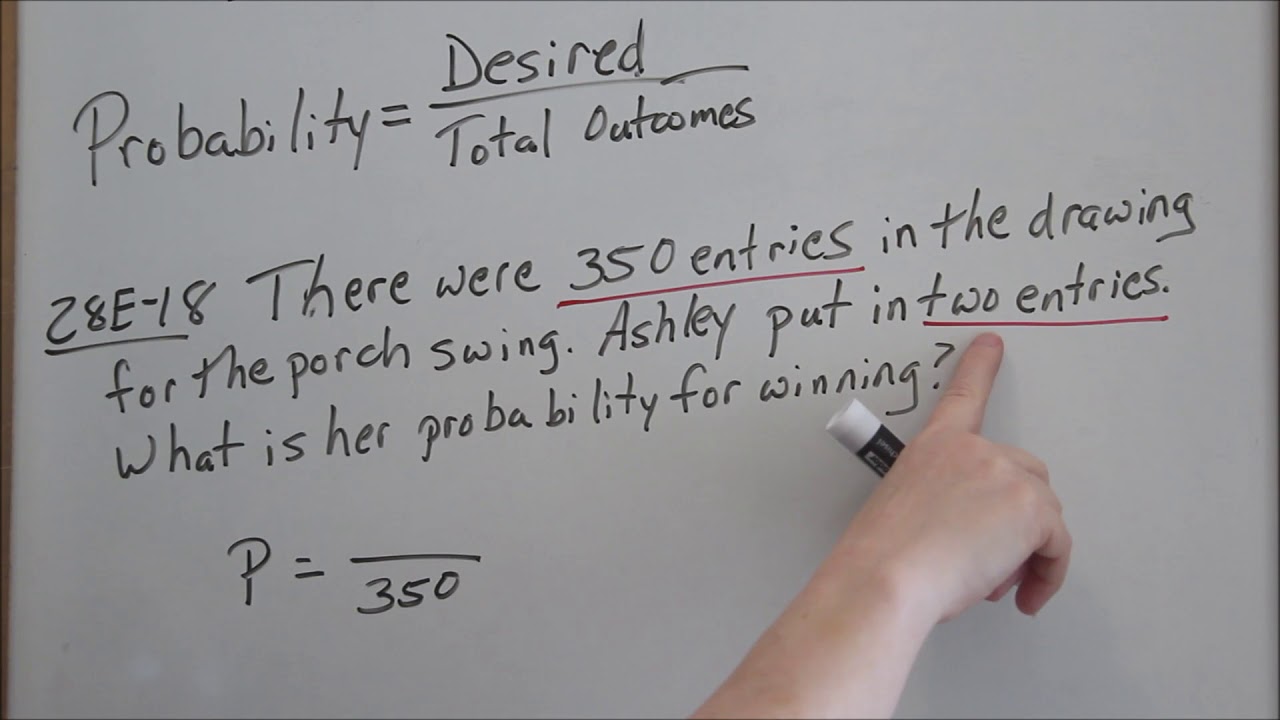 Probability = Desired
Total Outcomes
28E-18 There were 350 entries in the drawing
for the porch swing. Ashley put in two entries.
What is her probability for winning?
P =
350